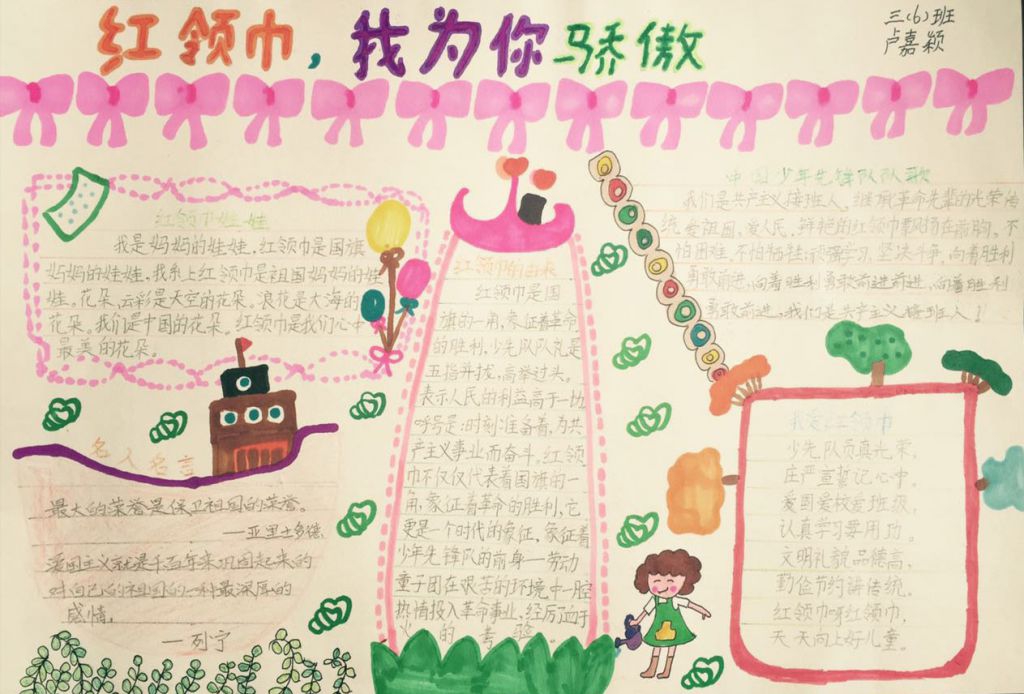 红领巾，我为你骄傲
三(6)班
卢嘉颖
红领巾娃娃
我是妈妈的娃娃，红领巾是国旗
妈妈的娃娃，我系上红领巾是祖国妈妈的娃
娃。花朵，云彩是天空的花朵。浪花是大海的
花朵。我们是中国的花朵。红领巾是我们心中
最美的花朵。
名人名言
最大的荣誉是保卫祖国的荣誉。
——亚里士多德
爱国主义就是千百年来巩固起来的
对自己的祖国的一种最深厚的
感情。
—列宁
红领巾的由来
红领巾是国
旗的一角，象征着革命
的胜利，少先队队礼是
五指并拢，高举过头。
表示人民的利益高于一切
呼号是：时刻准备着，为共
产主义事业而奋斗。红领
巾不仅仅代表着国旗的一
角，象征着革命的胜利，它
更是一个时代的象征，象征着
少年先锋队的前身一劳动
童子团在艰苦的环境中一腔
热情投入革命事业，经历了血于
火的考验。
中国少年先锋队队歌
我们是共产主义接班人，继承革命先辈的光荣传
统，爱祖国，爱人民，鲜艳的红领巾飘扬在前胸。不
怕困难，不怕牺牲，顽强学习，坚决斗争，向着胜利
勇敢前进，向着胜利勇敢前进前进，向着胜利
勇敢前进，我们是共产主义接班人！
我爱红领巾
少先队员真光荣，
庄严誓记心中。
爱国爱校爱班级，
认真学习要用功。
文明礼貌品德高，
勤俭节约讲传统。
红领巾呀红领巾，
天天向上好儿童。